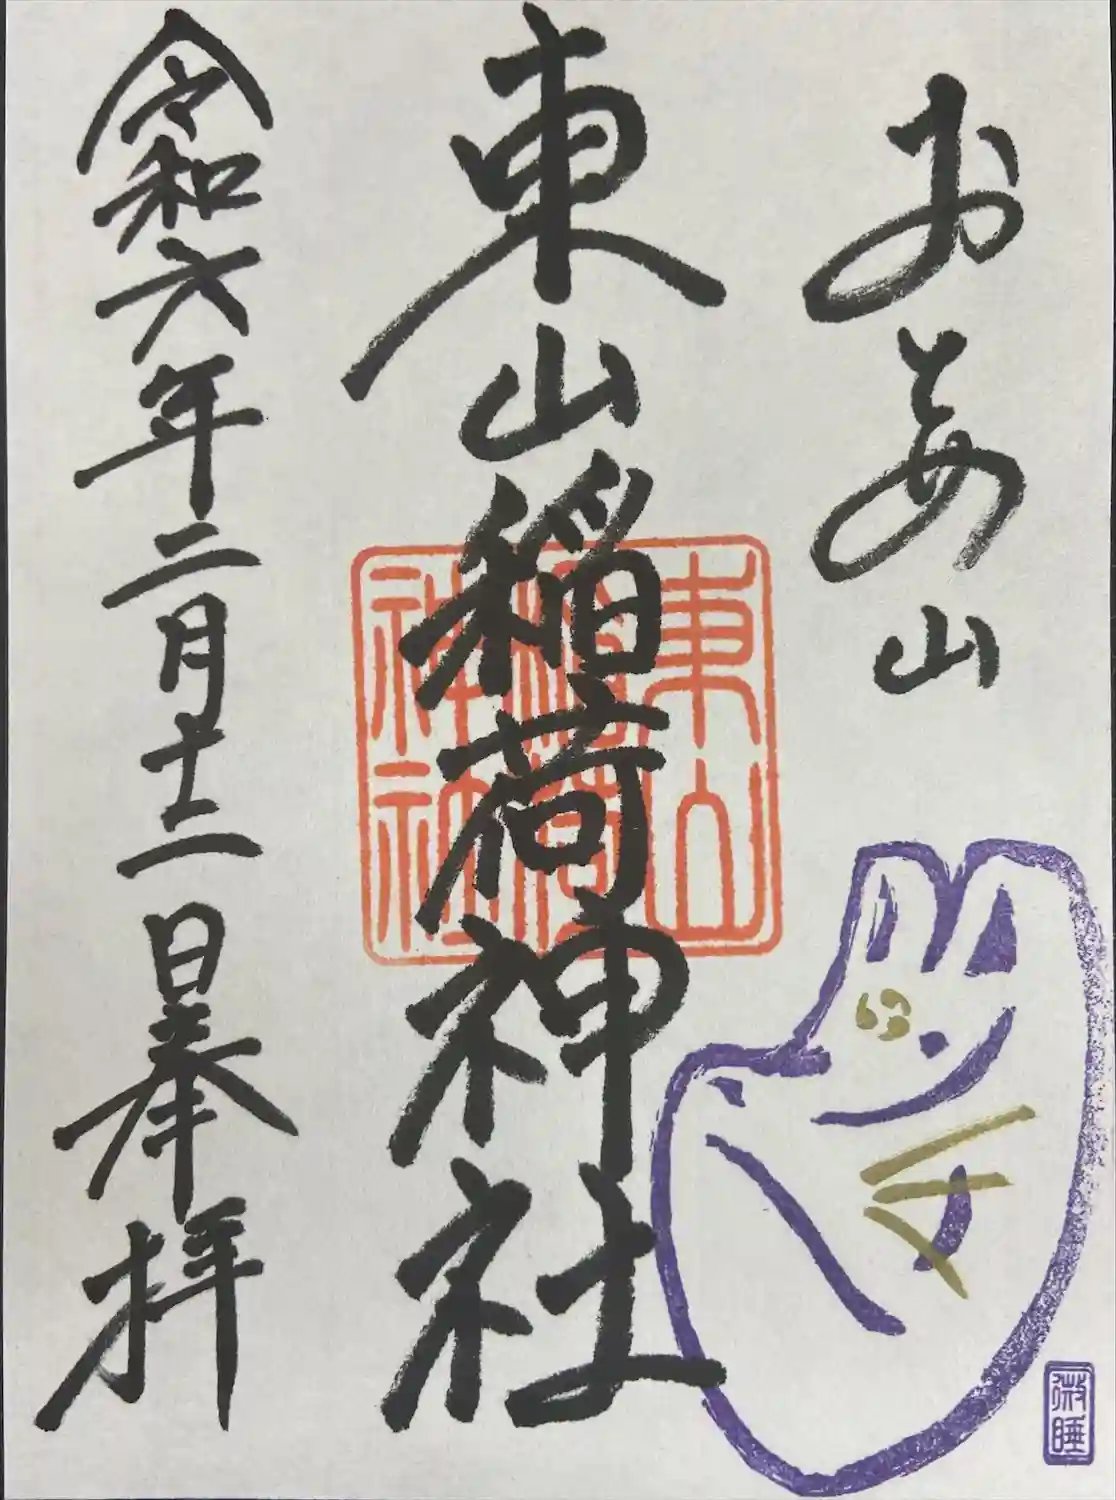 お山
東山稲荷神社
令和六年二月十二日奉拝
東山
稲荷
神社
微睡